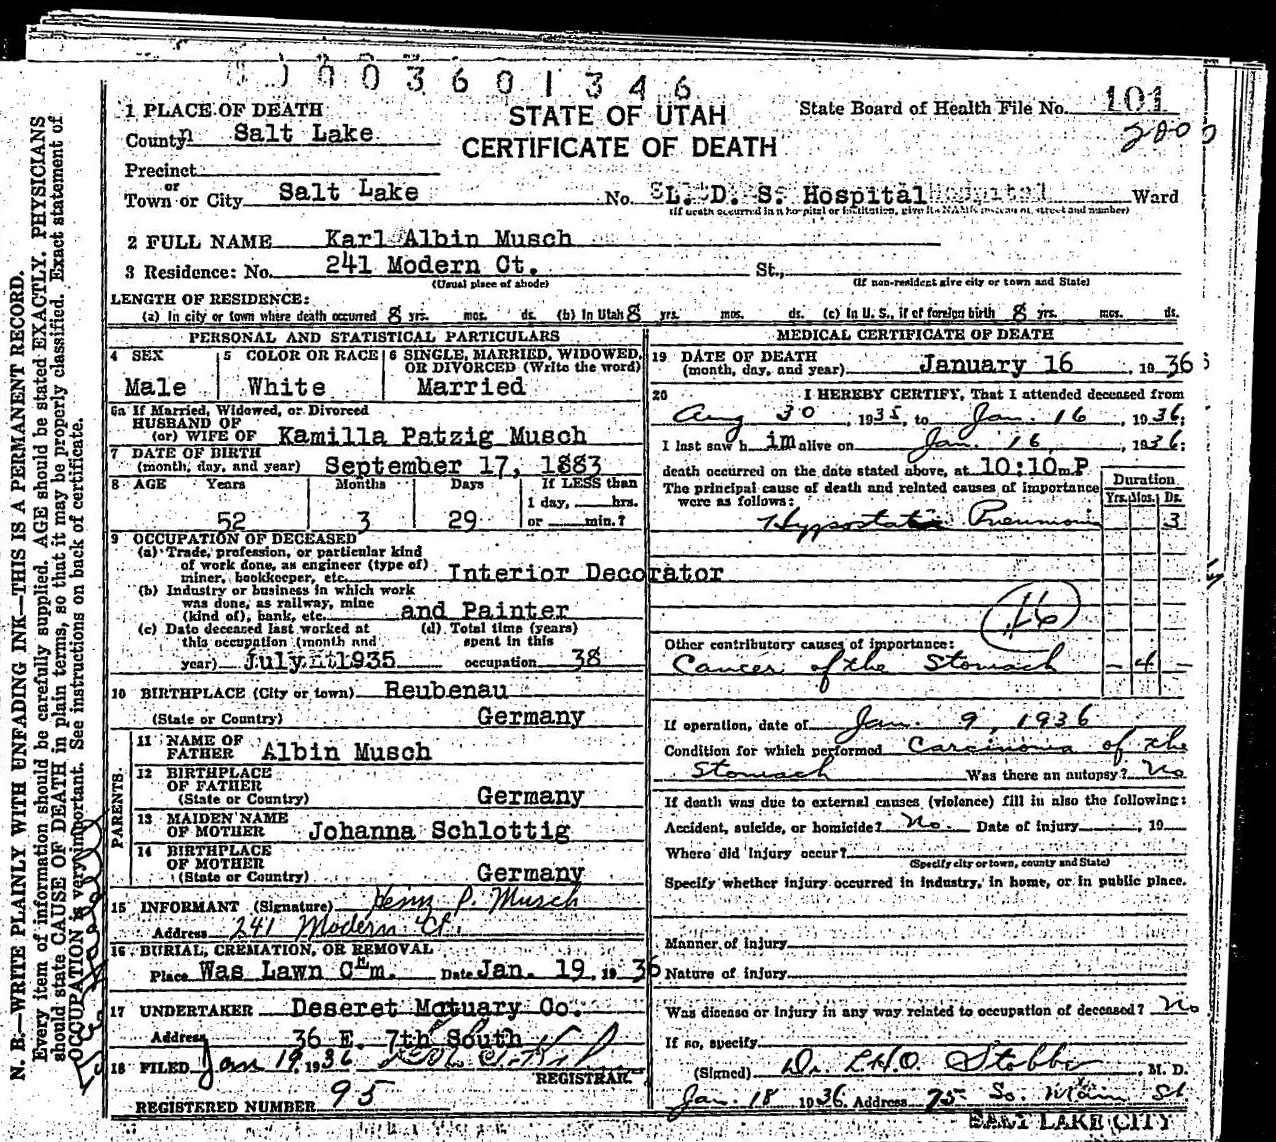 0003601346
1 PLACE OF DEATH
STATE OF UTAH
State Board of Health File No. 101
County Salt Lake
CERTIFICATE OF DEATH
200
Precinct
or
Town or City Salt Lake No. L. D. S. Hospital Ward
(If death occurred in a hospital or institution, give its NAME instead of street and number)
2 FULL NAME Karl Albin Musch
3 Residence: No. 241 Modern Ct. St.,
(Usual place of abode) (If non-resident give city or town and State)
LENGTH OF RESIDENCE:
(a) In city or town where death occurred 8 yrs. mos. ds. (b) In Utah 8 yrs. mos. ds. (c) In U. S., if of foreign birth 8 yrs. mos. ds.
PERSONAL AND STATISTICAL PARTICULARS
4 SEX 5 COLOR OR RACE 6 SINGLE, MARRIED, WIDOWED, OR DIVORCED (Write the word)
Male White Married
6a If Married, Widowed, or Divorced
HUSBAND OF
(or) WIFE OF Kamilla Patzig Musch
7 DATE OF BIRTH
(month, day, and year) September 17, 1883
8 AGE Years Months Days If LESS than
1 day, hrs.
52 3 29 or min.?
9 OCCUPATION OF DECEASED
(a) Trade, profession, or particular kind
of work done, as engineer (type of)
miner, bookkeeper, etc. Interior Decorator
(b) Industry or business in which work
was done, as railway, mine
(kind of), bank, etc. and Painter
(c) Date deceased last worked at (d) Total time (years)
this occupation (month and spent in this
year) July 1935 occupation 38
10 BIRTHPLACE (City or town) Reubenau
(State or Country) Germany
PARENTS.
11 NAME OF
FATHER Albin Musch
12 BIRTHPLACE
OF FATHER
(State or Country) Germany
13 MAIDEN NAME
OF MOTHER Johanna Schlottig
14 BIRTHPLACE
OF MOTHER
(State or Country) Germany
15 INFORMANT (Signature) Heinz P. Musch
Address 241 Modern Ct.
16 BURIAL, CREMATION, OR REMOVAL
Place Was Lawn Cem. Date Jan. 19, 1936
17 UNDERTAKER Deseret Motuary Co.
Address 36 E. 7th South
18 FILED Jan 19, 1936
REGISTRAR.
REGISTERED NUMBER 95
MEDICAL CERTIFICATE OF DEATH
19 DATE OF DEATH
(month, day, and year) January 16, 1936
20 I HEREBY CERTIFY, That I attended deceased from
Aug 30, 1935, to Jan. 16, 1936;
I last saw him alive on Jan. 16, 1936;
death occurred on the date stated above, at 10:10 m.P
The principal cause of death and related causes of importance
were as follows:
Duration
Yrs. Mos. Ds.
Hypostatic Pneumonia 3
46
Other contributory causes of importance:
Cancer of the Stomach - 4 -
If operation, date of Jan. 9, 1936
Condition for which performed Carcinoma of the
Stomach Was there an autopsy? No
If death was due to external causes (violence) fill in also the following:
Accident, suicide, or homicide? No. Date of injury , 19
Where did injury occur?
(Specify city or town, county and State)
Specify whether injury occurred in industry, in home, or in public place.
Manner of injury
Nature of injury
Was disease or injury in any way related to occupation of deceased? No
If so, specify
(Signed) Dr. L.H.O. Stobbe, M. D.
Jan. 18 1936. Address 75 So. Main St
SALT LAKE CITY
N. B.—WRITE PLAINLY WITH UNFADING INK—THIS IS A PERMANENT RECORD.
Every item of information should be carefully supplied. AGE should be stated EXACTLY. PHYSICIANS
should state CAUSE OF DEATH in plain terms, so that it may be properly classified. Exact statement of
OCCUPATION is very important. See instructions on back of certificate.